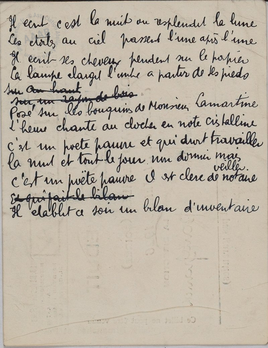 Il écrit c'est la nuit où resplendit la lune
Les étoiles au ciel passent l'une après l'une
Il écrit ses cheveux pendent sur le papier
La lampe élargit l'ombre à partir de ses pieds
sur un
sur un rayon de bois
Posé sur les bouquins de Monsieur Lamartine
L'heure chante au clocher en note cristalline
c'est un poète pauvre et qui doit travailler
la nuit et tout le jour non dormir mais veiller.
c'est un poète pauvre il est clerc de notaire
Et qui fait le bilan
Il établit ce soir un bilan d'inventaire